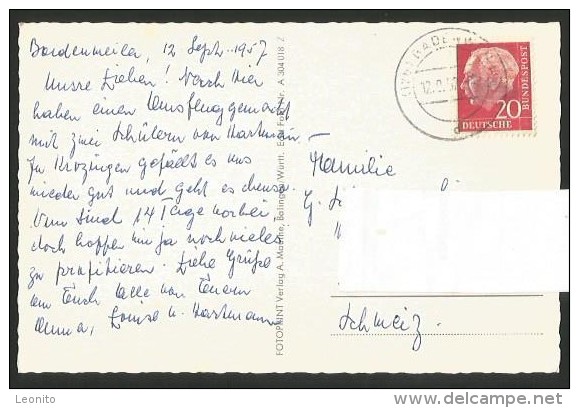 Badenweiler, 12 Sept. 1957
Unsre Lieben! Nach hier
haben einen Ausflug gemacht
mit zwei Schülern von Hartmann
In Krozingen gefällt es uns
wieder gut und geht es ebenso.
Nun sind 14 Tage vorbei
doch hoffen wir ja noch vieles
zu profitieren. Liebe Grüsse
an Euch alle von Euern
Emma, Louise u. Hartmann
FOTOPRINT Verlag A. Mauthe, Balingen/Württ. Echt Foto Nr. A 304 018 Z
BADENWEILER
20
DEUTSCHE
BUNDESPOST
Familie
G.
Schweiz.
Leonito
www.delcampe.net